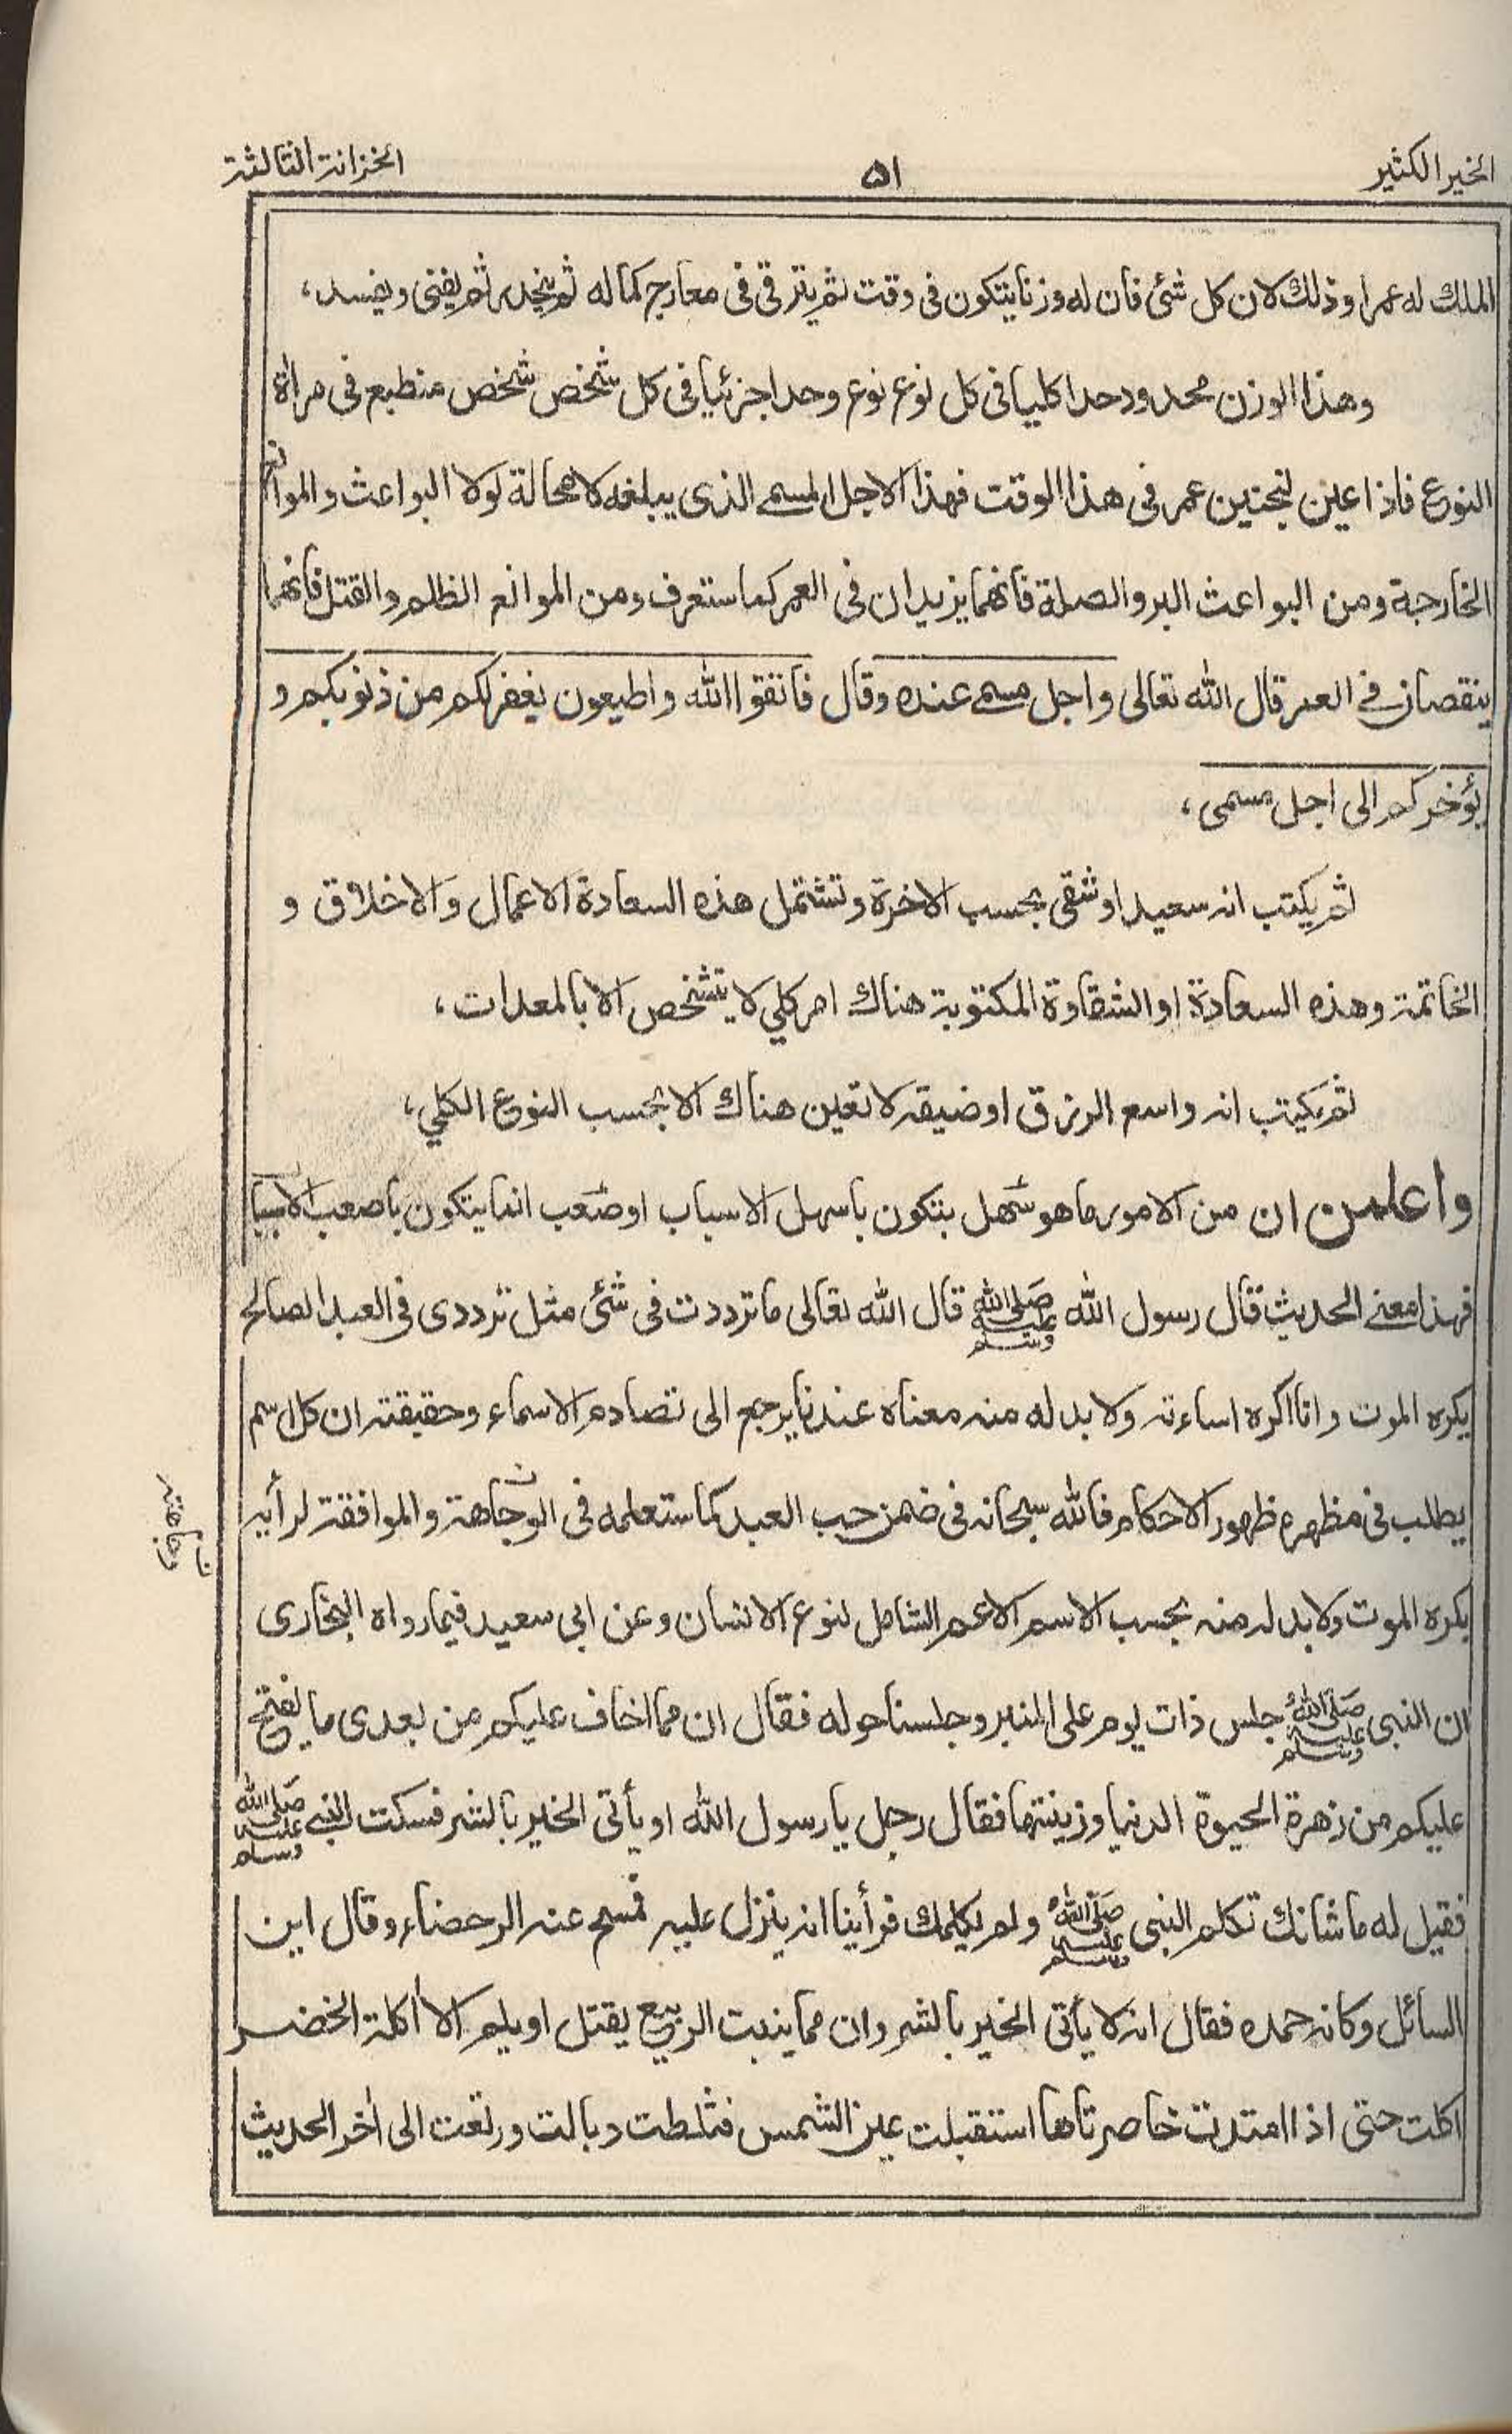 الخير الكثير
۵۱
الخزانة الثالثة
الملك له عمرا وذلك لان كل شئ فان له وزنا يتكون فى وقت ثم يترقى فى معارج كماله ثم ينحدر ثم يفنى ويفسد،
وهذا الوزن محدود حدا كليا فى كل نوع نوع وحدا جزئيا فى كل شخص شخص منطبع فى مراة
النوع فاذا عين لجنين عمر فى هذا الوقت فهذا الاجل المسمى الذى يبلغه لا محالة لولا البواعث والموانع
الخارجة ومن البواعث البر والصلة فانهما يزيدان فى العمر كما ستعرف ومن الموانع الظلم والقتل فانهما
ينقصان فى العمر قال الله تعالى واجل مسمى عنده وقال فاتقوا الله واطيعون يغفر لكم من ذنوبكم و
يؤخركم الى اجل مسمى،
ثم يكتب انه سعيد او شقى بحسب الاخرة وتشتمل هذه السعادة الاعمال والاخلاق و
الخاتمة وهذه السعادة او الشقاوة المكتوبة هناك امر كلي لا يتشخص الا بالمعدات،
ثم يكتب انه واسع الرزق او ضيقه لا تعين هناك الا بحسب النوع الكلي،
واعلمن ان من الامور ما هو سهل يتكون باسهل الاسباب او صعب انما يتكون باصعب الاسباب
فهذا معنى الحديث قال رسول الله صلى الله عليه وسلم قال الله تعالى ما ترددت فى شئ مثل ترددى فى العبد الصالح
يكره الموت وانا اكره اساءته ولا بد له منه معناه عندنا يرجع الى تصادم الاسماء وحقيقته ان كل اسم
يطلب فى مظهره ظهور الاحكام فالله سبحانه فى ضمن حب العبد كما ستعلمه فى الوجاهة والموافقة لرأيه
ن وجاهته
يكره الموت ولا بد له منه بحسب الاسم الاعم الشامل لنوع الانسان وعن ابى سعيد فيما رواه البخارى
ان النبى صلى الله عليه وسلم جلس ذات يوم على المنبر وجلسنا حوله فقال ان مما اخاف عليكم من بعدى ما يفتح
عليكم من زهرة الحيوة الدنيا وزينتها فقال رجل يا رسول الله او يأتى الخير بالشر فسكت النبى صلى الله عليه وسلم
فقيل له ما شانك تكلم النبى صلى الله عليه وسلم ولم يكلمك فرأينا انه ينزل عليه فمسح عنه الرحضاء وقال اين
السائل وكانه حمده فقال انه لا يأتى الخير بالشر وان مما ينبت الربيع يقتل او يلم الا أكلة الخضر
اكلت حتى اذا امتدت خاصرتاها استقبلت عين الشمس فثلطت وبالت ورتعت الى اٰخر الحديث